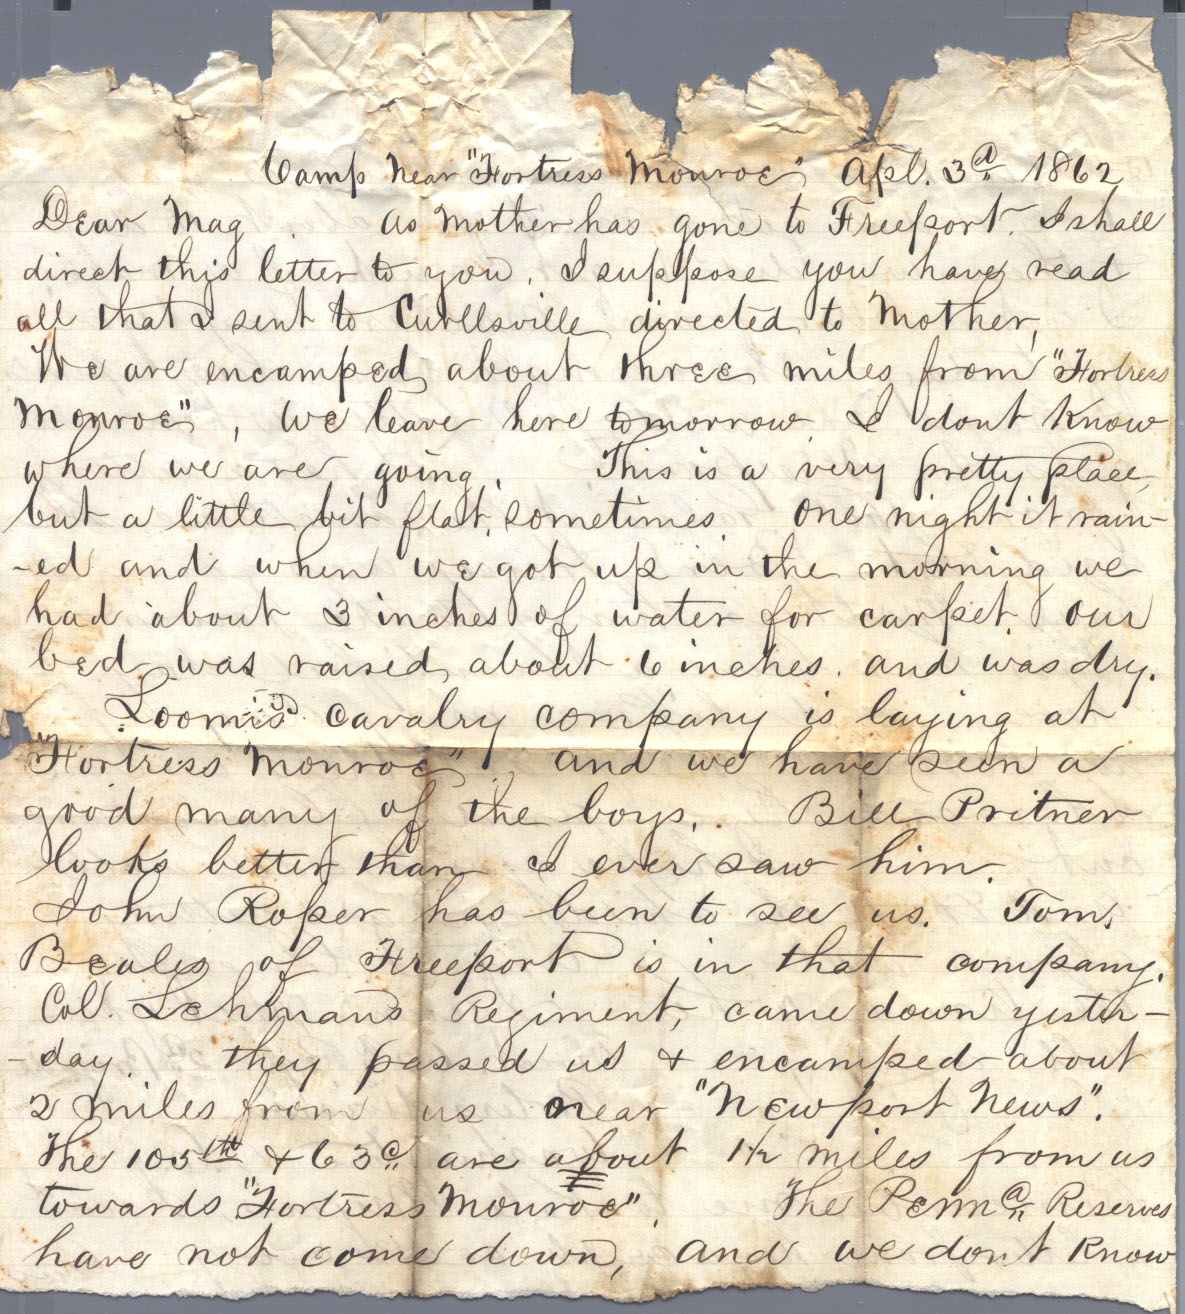 Camp Near "Fortress Monroe" Apl. 3d 1862
Dear Mag . As Mother has gone to Freeport. I shall
direct this letter to you. I suppose you have read
all that I sent to Curllsville directed to Mother,
We are encamped about three miles from "Fortress
Monroe", We leave here tomorrow I dont Know
where we are going. This is a very pretty place
but a little bit flat, sometimes One night it rain-
-ed and when we got up in the morning we
had about 3 inches of water for carpet. Our
bed was raised about 6 inches. and was dry.
Loomis' Cavalry company is laying at
"Fortress Monroe", and we have seen a
good many of the boys. Bill Pritner
looks better than I ever saw him.
John Roper has been to see us. Tom.
Beales of Freeport is in that company.
Col. Lehmans Regiment, came down yester-
-day. they passed us & encamped about
2 miles from us near "Newport News".
The 105th & 63d are about 1½ miles from us
towards "Fortress Monroe". The Penna Reserves
have not come down, and we dont Know